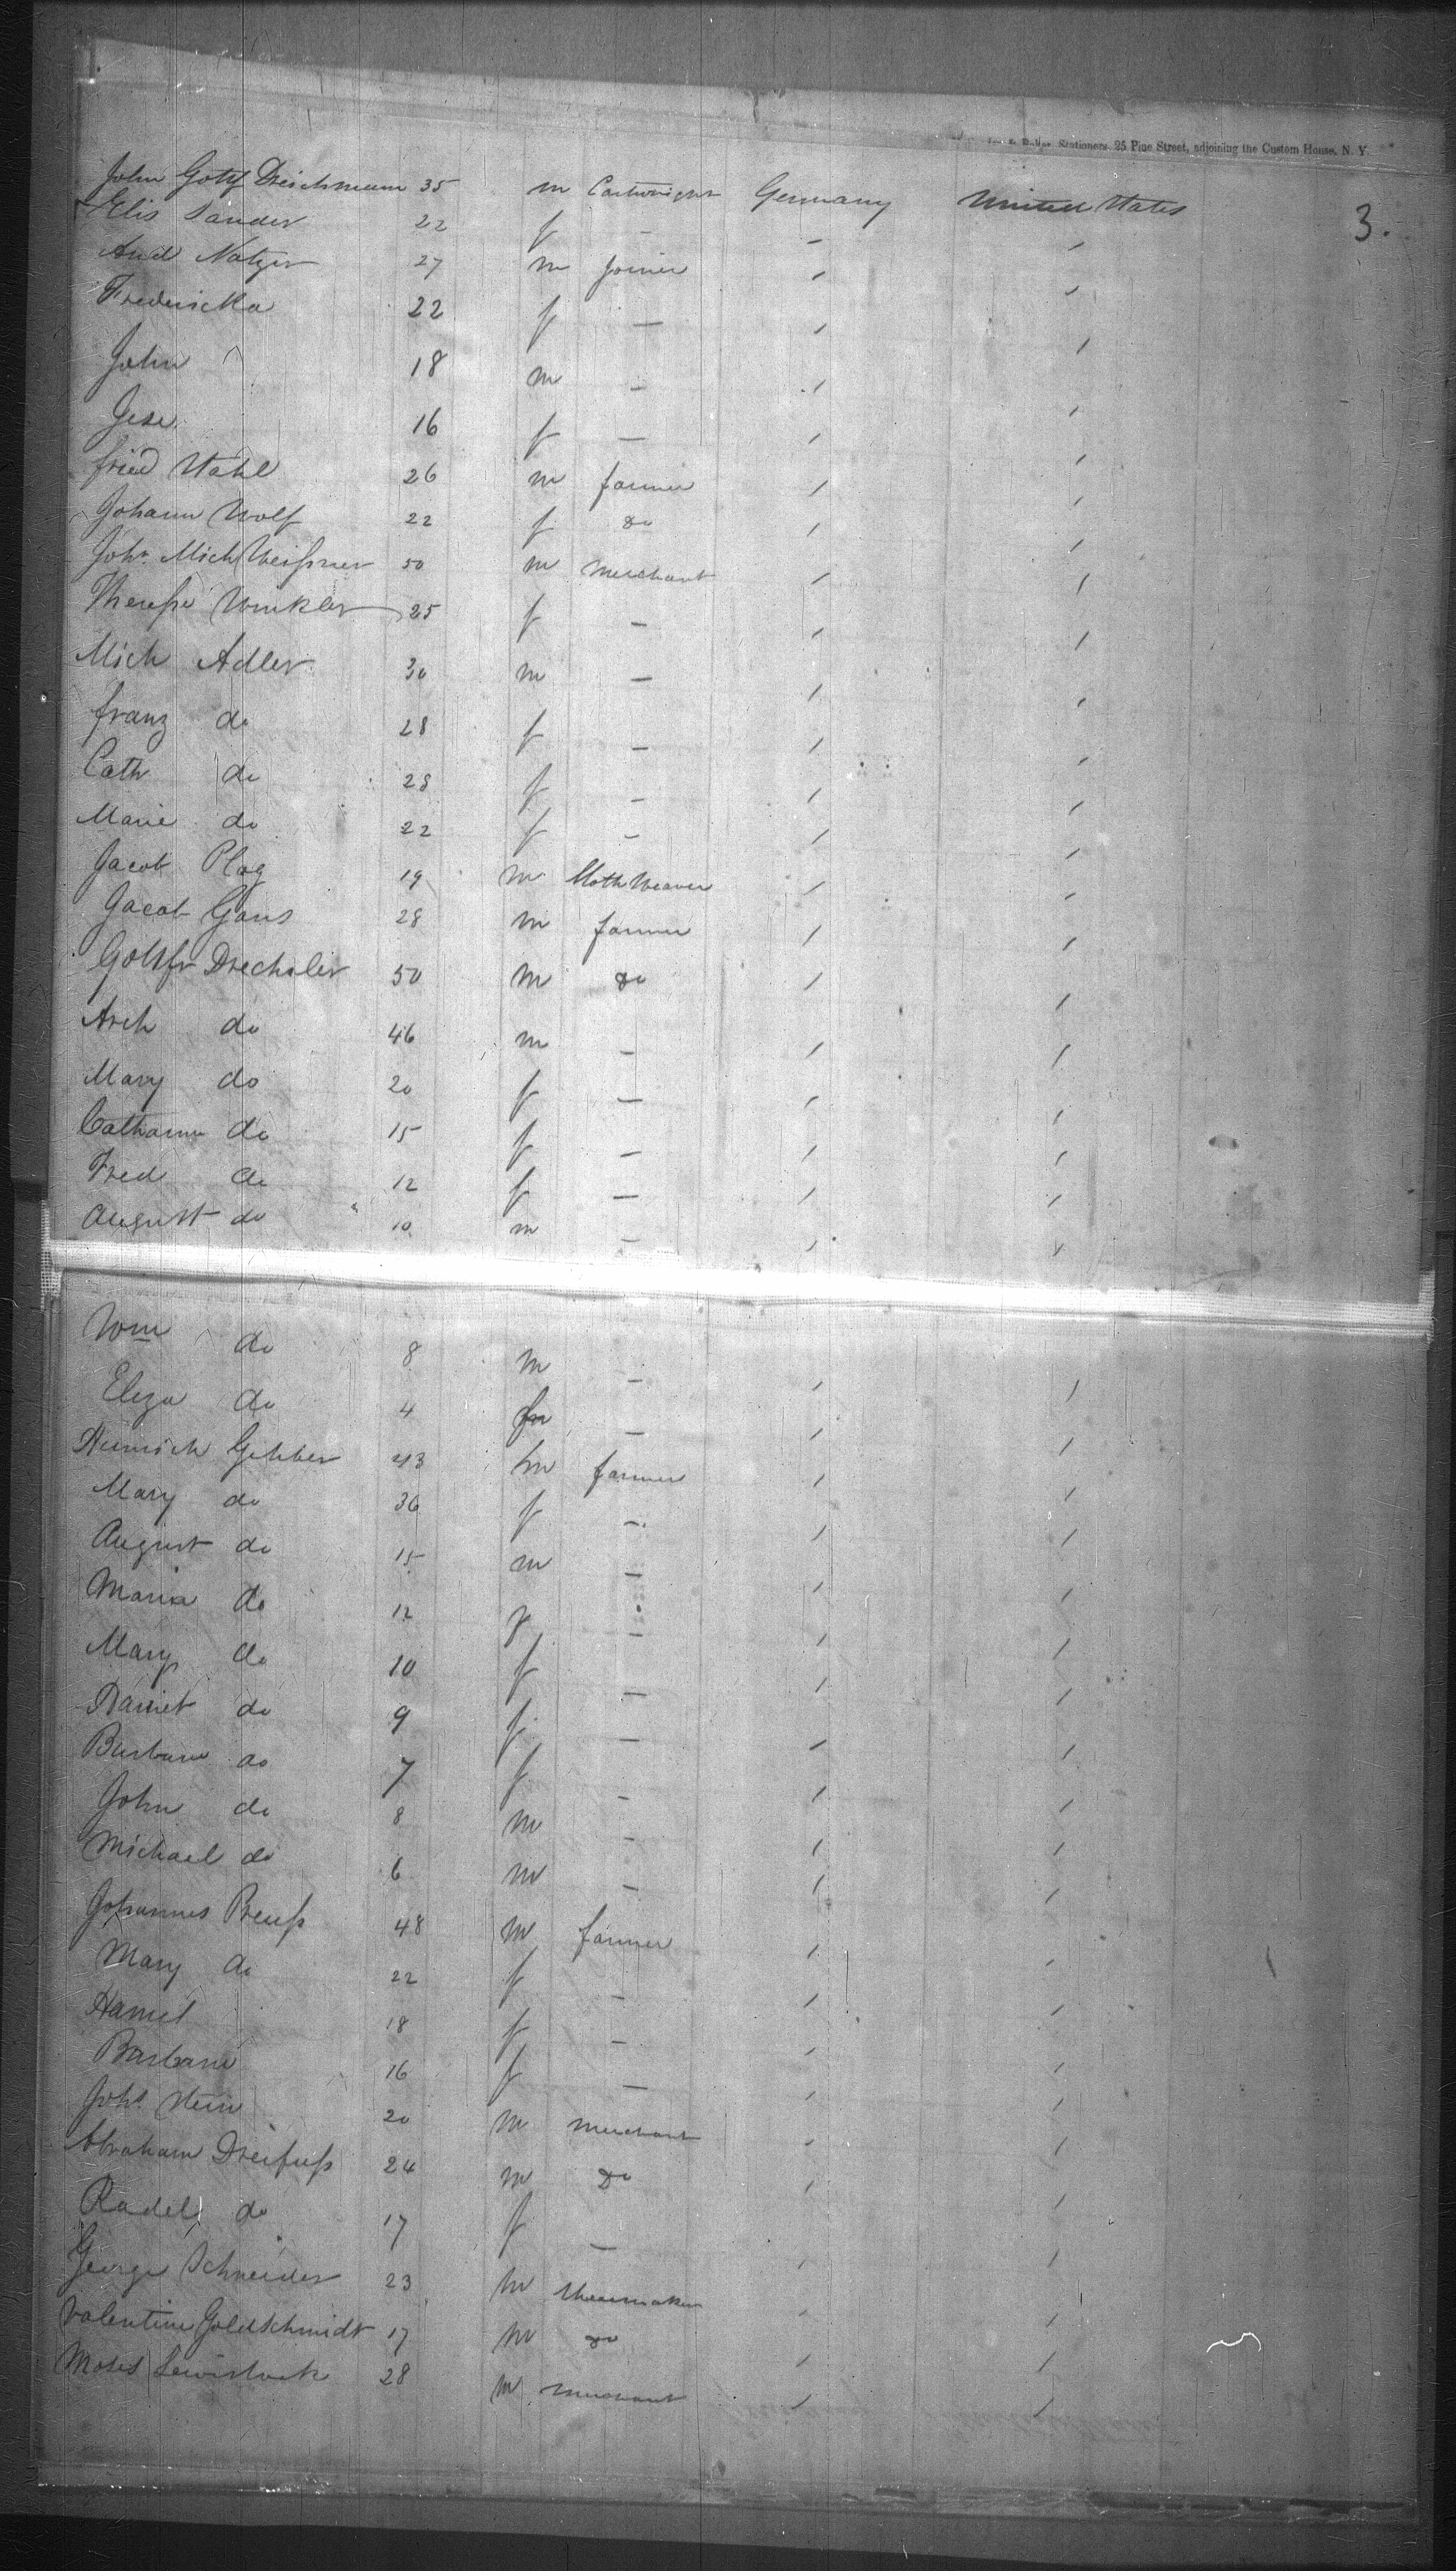 & Stationers, 25 Pine Street, adjoining the Custom House, N. Y.
3.
John Gottf Dreichmann 35 m Cartwright Germany United States
Elis Sander 22 f - - /
And Natzer 27 m Joiner / /
Fredericka 22 f — / /
John 18 m - / /
Jese 16 f — / /
fried Stahl 26 m farmer / /
Johann Wolf 22 f do / /
John Mich Weißner 50 m merchant / /
Therese Winkler 25 f - / /
Mich Adler 30 m - / /
franz do 28 f - / /
Cath do 28 f - / /
Marie do 22 f - / /
Jacob Plag 19 m Cloth Weaver / /
Jacob Gans 28 m farmer / /
Gottfr Drechsler 50 m do / /
Arch do 46 m - / /
Mary do 20 f — / /
Catharine do 15 f - / /
Fred do 12 f — / /
August do 10 m - / /
Wm do 8 m - / /
Eliza do 4 f - / /
Heinrich 43 m farmer / /
Mary do 36 f - / /
August do 15 m - / /
Maria do 12 f - / /
Mary do 10 f — / /
do 9 f — / /
Barbara do 7 f - / /
John do 8 m - / /
Michael do 6 m - / /
Johannes Preuß 48 m farmer / /
Mary do 22 f - / /
18 f - / /
Barbara 16 f — / /
Joh. Stein 20 m merchant / /
Abraham Dreifuß 24 m Do / /
Radel do 17 f — / /
George Schneider 23 m Shoemaker / /
Valentine Goldschmidt 17 m do / /
Moses 28 m merchant / /